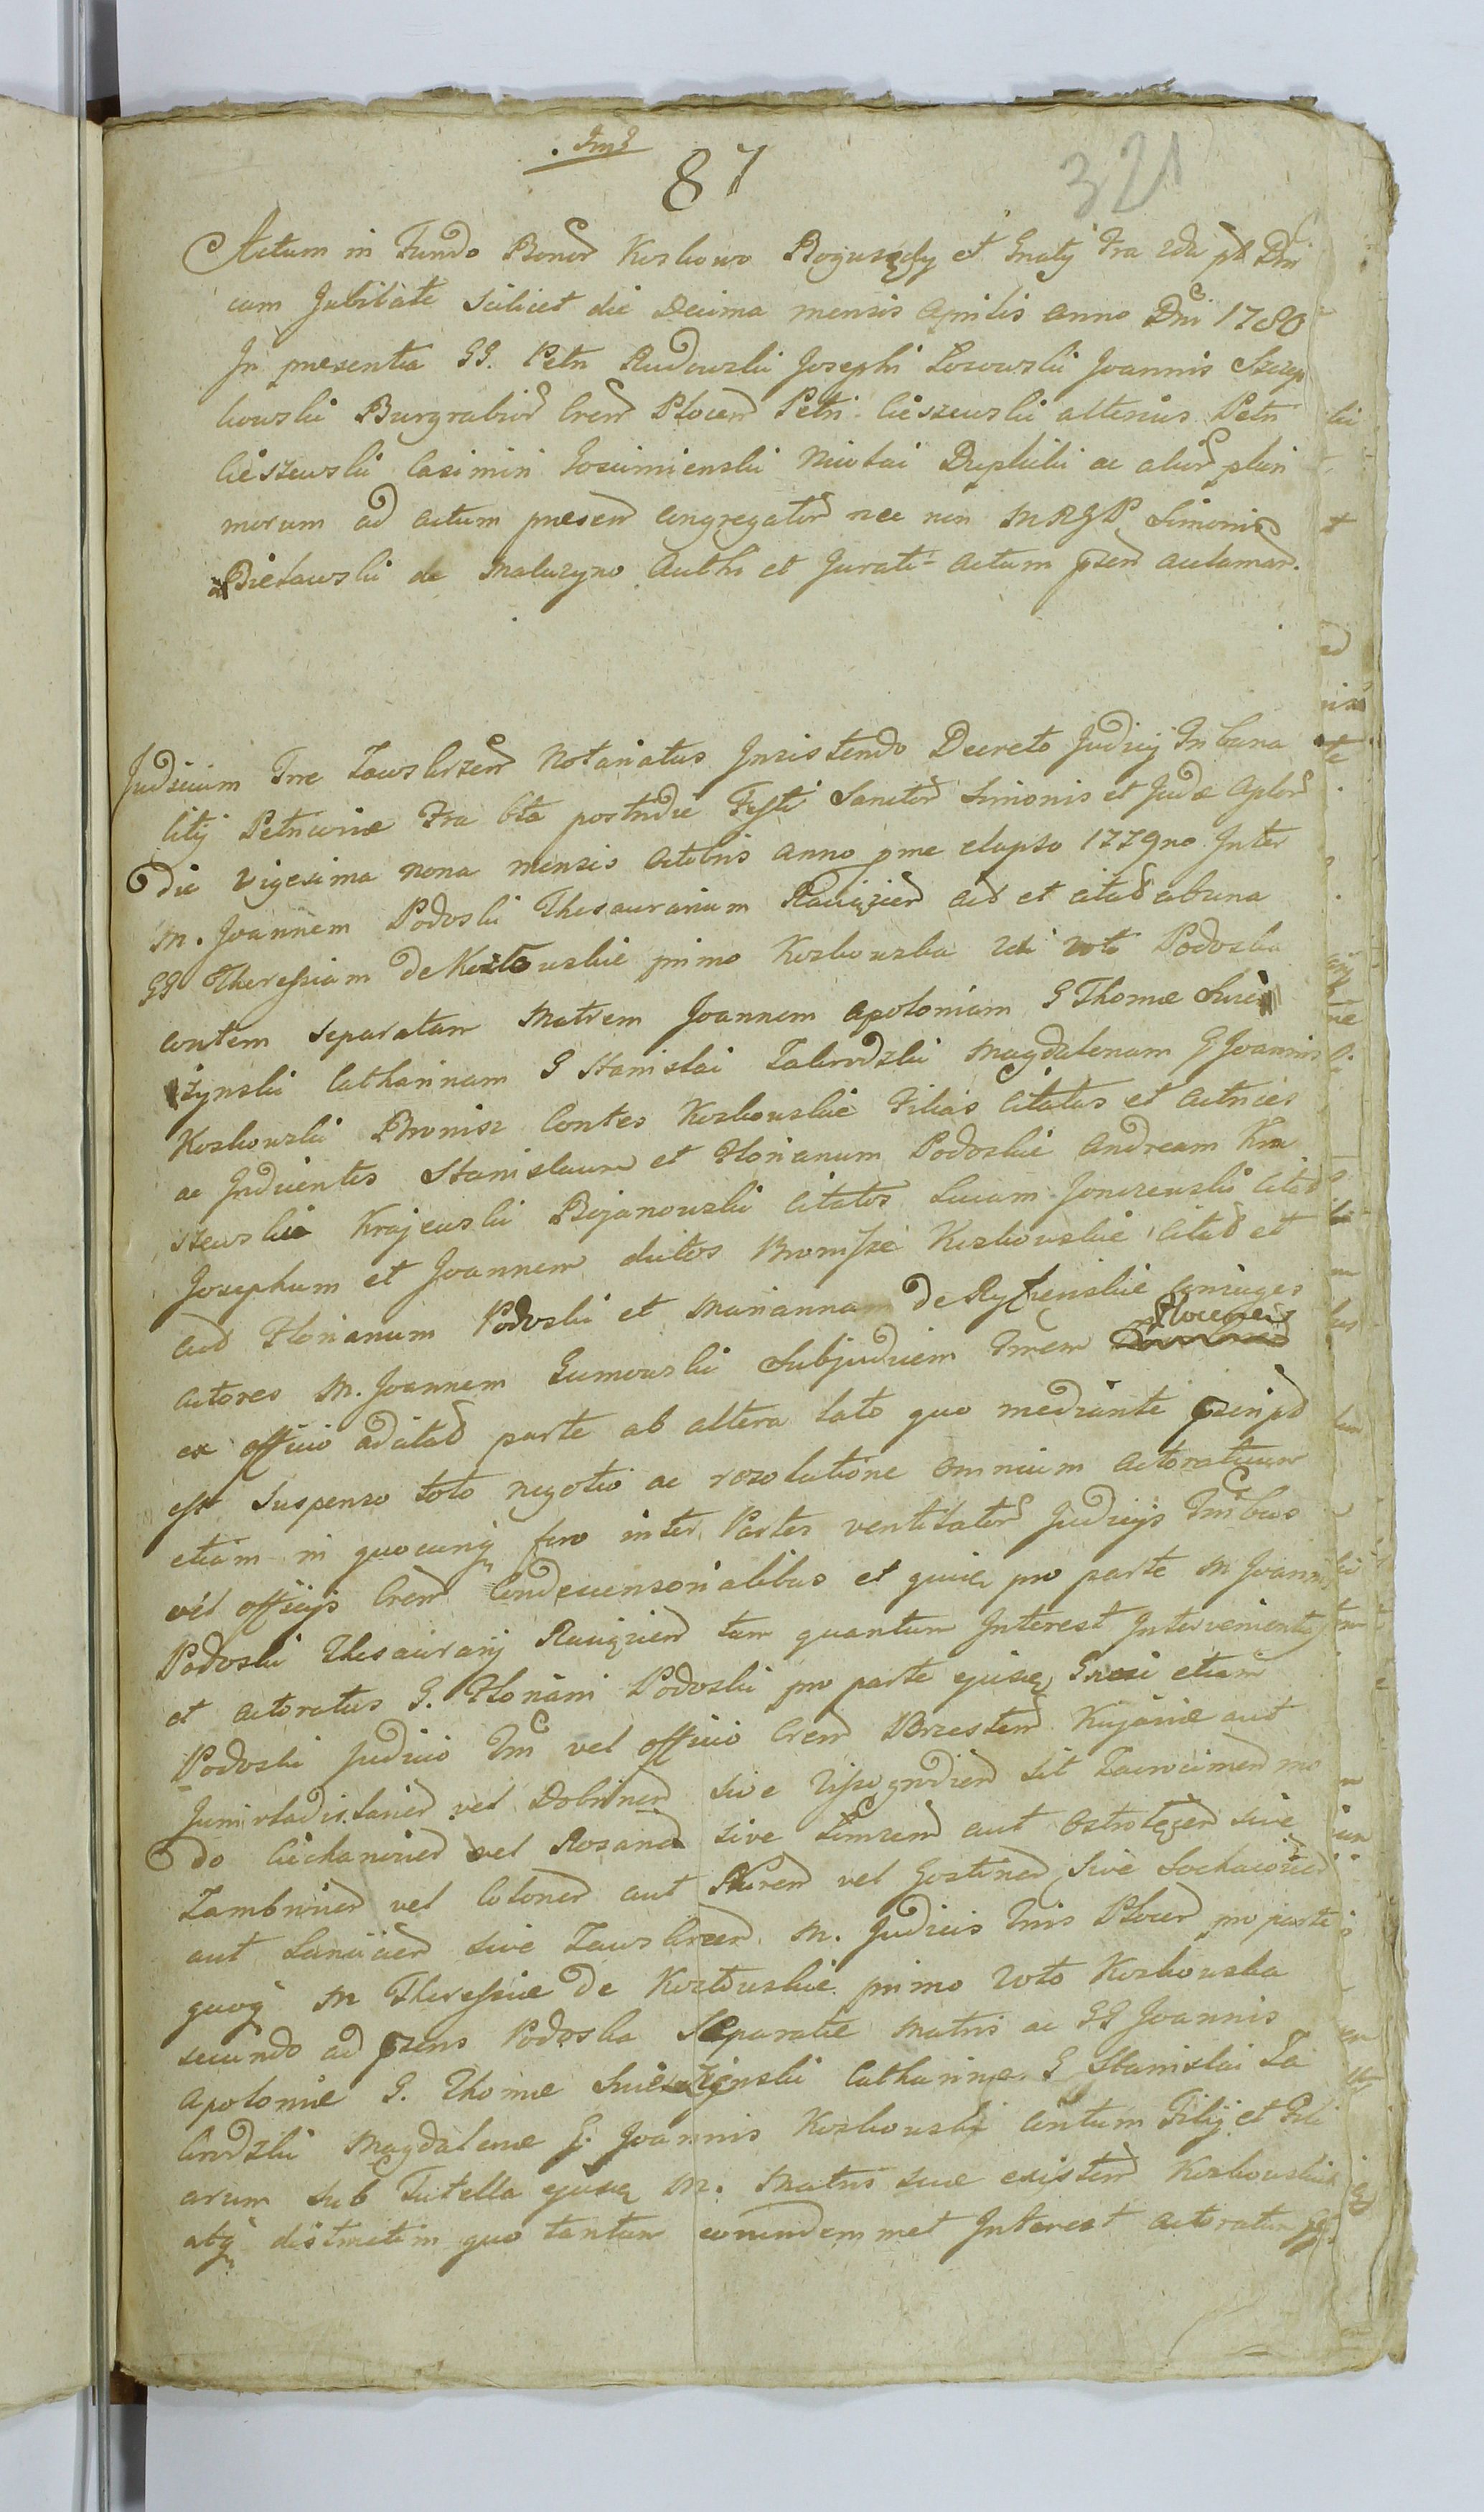 Ind
87
321
Actum in Fundo Bonor Koskowo Boguszęby et Gnaty Fra 2da pt Dni
cam Jubilate Scilicet die Decima mensis Aprilis anno Dni 1780
In presentia GG. Petri Rudowski Josephi Losowski Joannis Szczep
kowski Burgrabior Cren Plocen Petri Cieszewski alterius Petri
Cieszewski Casimiri Gosiemienski Nicolai Drpkiki ac alior pluri
morum ad actum presen congregator nec non MRGP Simonis
Bielawski de Maluzyno Auth et Jurati Actum psen aclaman.
Judicium Tre Zawskrzen Notariatus Insistendo Decreto Judicij Tribuna
litij Petricoviæ Fra 6ta postridie Festi Sanctor Simonis et Judæ Aplor
die Vigesima nona mensis Octobris anno pme elapso 1779no Inter
M. Joannem Podoski Thesaurarium Raciązien act et citat ab una
GG Theressiam de Kozłowskie primo Koskowska 2do voto Podoska
contem Separatam Matrem Joannem Apoloniam G Thomæ Swie
żynski Catharinam G Stanislai Zakrodzki Magdalenam G Joannis
Koskowski Bronisz Contes Koskowskie Filias citatus et actrices
ac Inducentes Stanislaum et Florianum Podoskie Andream Kra
szewskie Krajewski Bojanowski citatos Lucam Jonczewski Citat
Josephum et Joannem dictos Bronisze Koskowskie Citat et
act Florianum Podoski et Mariannam de Ryszenskie Coniuges
actores M. Joannem Gumowski Subjudicem Trrem Plocensem
ex officio adcitat parte ab altera lato quo mediante pscripd
est Suspenso toto negotio ac rosolutione omnium actoratuum
etiam in quocunq foro inter Partes ventilator Judicijs Trribus
vel officijs Cren Condescensorialibus et quidem pro parte M Joannis
Podoski Thesaurarij Raciązien tam quantum Interest Intervenientis
et actoratus G. Floriani Podoski pro parte ejusq Grosi etiam
Podoski Judicio Trri vel officio Cren Brzesten Kujaviæ aut
Junivladislavien vel Dobrinen sive Vissogrodien sit Zawrocimen mo
do Ciechanovien vel Rosanen sive Lomzen aut Ostrołęgen sive
Zambrovien vel Colonen aut Nuren vel Gostinen sive Sochaczovien
aut Sanicien sive Zawskrzen M. Judicis Trris Plocen pro parte
quoq M Theressiæ de Kozłowskie primo voto Koskowska
secundo ad psens Podoska Separatæ Matris ac GG Joannis
Apoloniæ G. Thomæ Swieżynski Catharinæ G Stanislai Za
krodzki Magdalenæ G. Joannis Koskowski Contum Filij et Fili
arum sub Tutella ejusq M. Matris suæ existen Koskowskich
atq distinctim quo tantum eorundemmet Interest actoratum